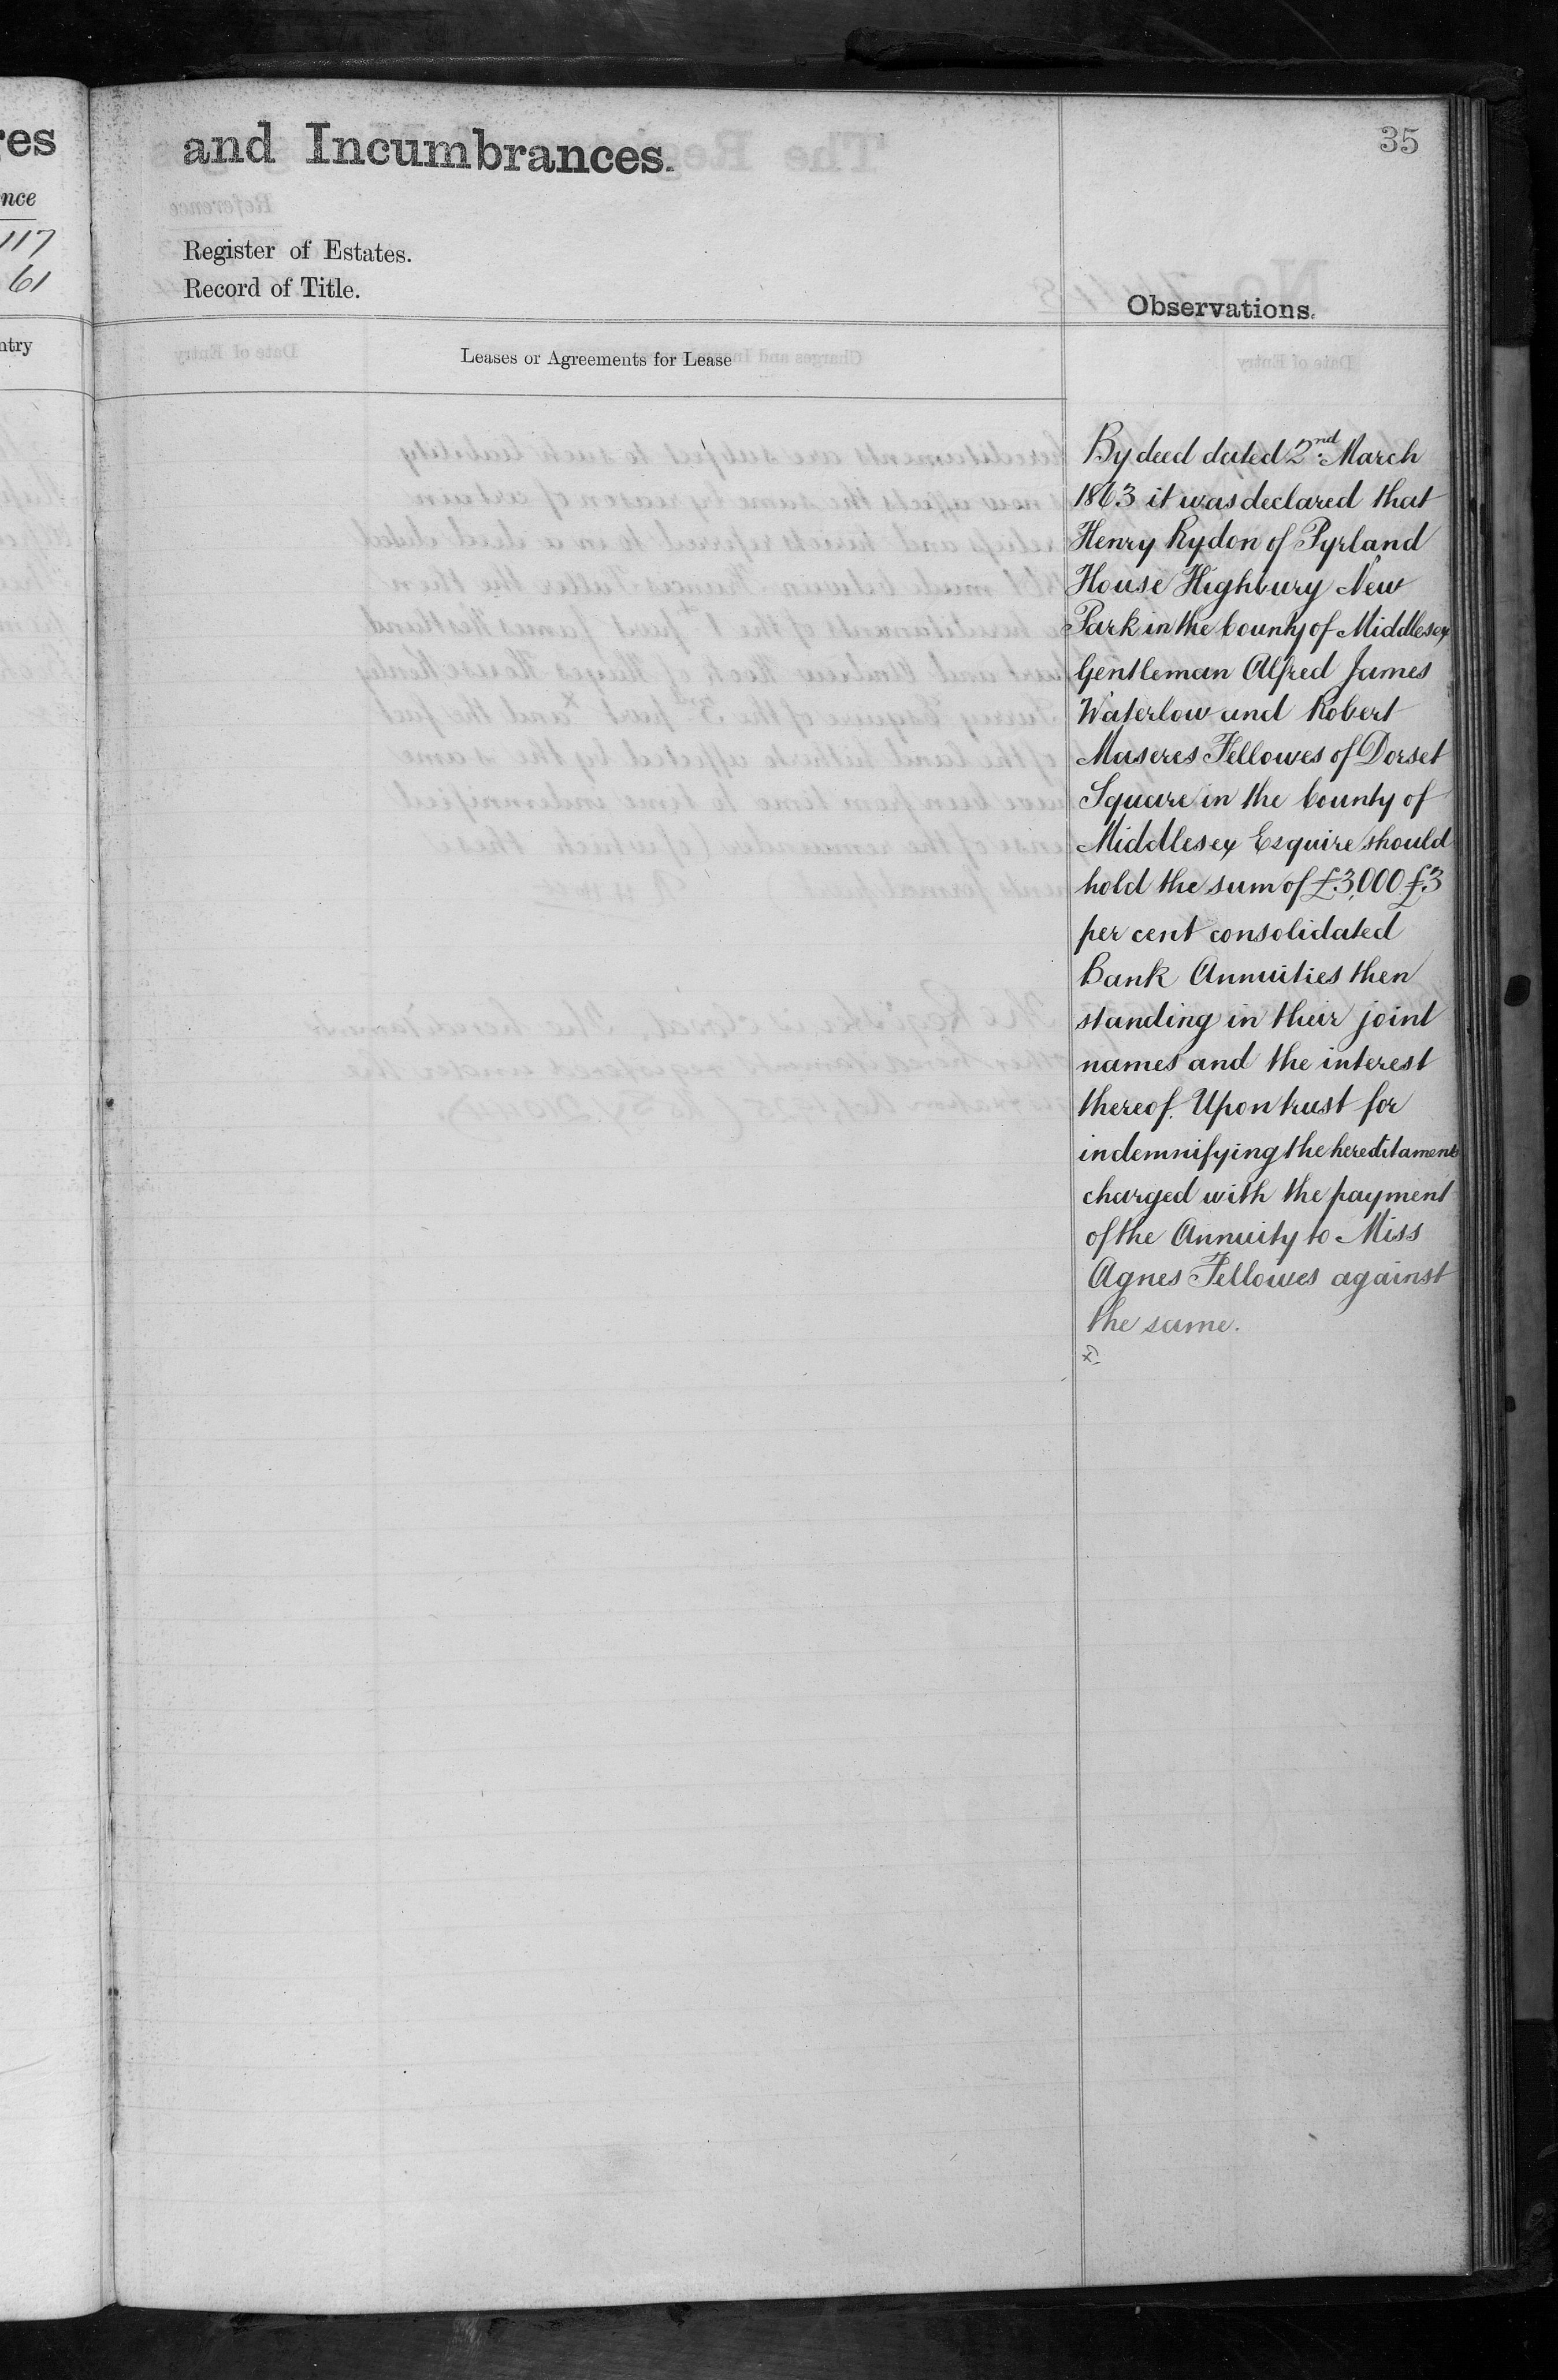 res
nce
117
61
ntry
and Incumbrances.
35
Register of Estates.
Record of Title.
Observations.
Leases or Agreements for Lease
By deed dated 2nd. March
1863 it was declared that
Henry Rydon of Pyrland
House Highbury New
Park in the County of Middlesex
Gentleman Alfred James
Waterlow and Robert
Maseres Fellowes of Dorset
Square in the County of
Middlesex Esquire should
hold the sum of £3,000 £3
per cent consolidated
Bank Annuities then
standing in their joint
names and the interest
thereof. Upon trust for
indemnifying the hereditaments
charged with the payment
of the Annuity to Miss
Agnes Fellowes against
the same.